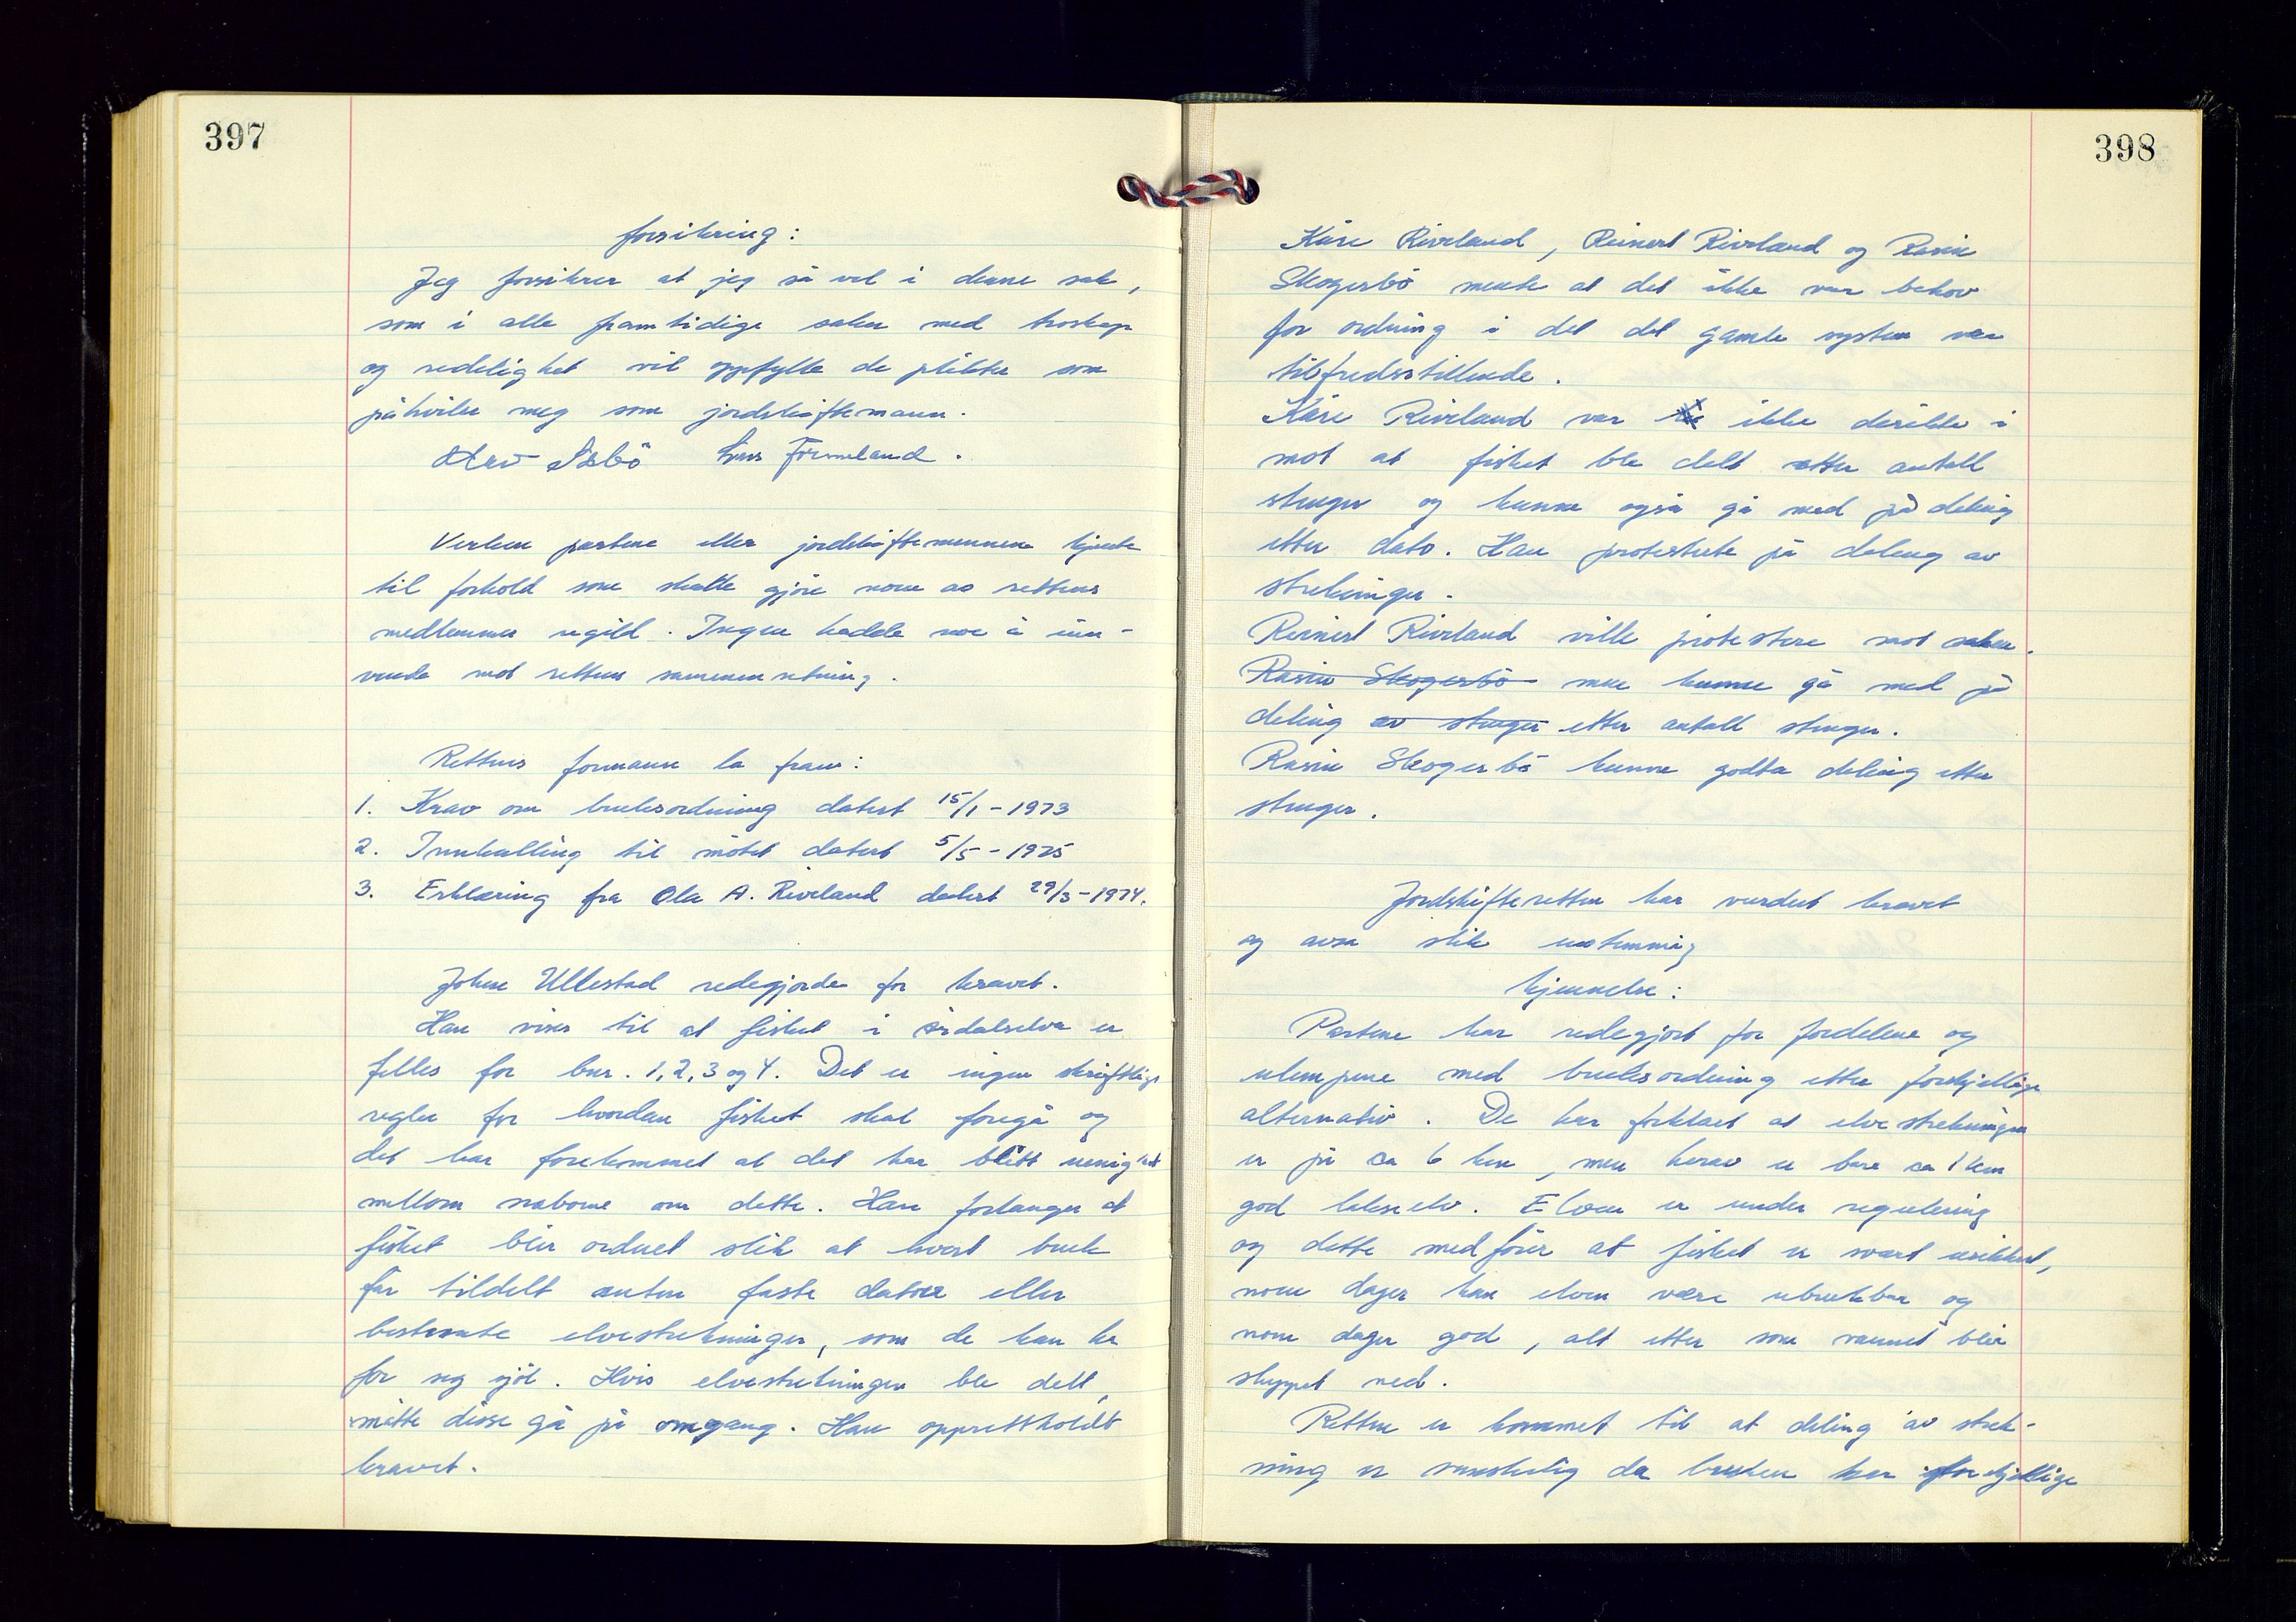 397
forsikring:
Jeg forsikrer at jeg så vel i denne sak,
som i alle framtidige saker med troskap
og redelighet vil oppfylle de plikter som
påhviler meg som jordskiftemann.
Lars Førneland.
Verken partene eller jordskiftemennene kjente
til forhold som skulle gjöre noen av rettens
medlemmer ugild. Ingen hadde noe å inn-
vende mot rettens sammensetning.
Rettens formann la fram:
1. Krav om bruksordning datert 15/1-1973
2. Innkalling til mötet datert 5/5-1975
3. Erklæring fra Ola A. Riveland datert 29/3-1974.
John Ullestad redegjorde for kravet.
Han viser til at fisket i årdalselva er
felles for bnr. 1, 2, 3 og 4. Det er ingen skriftlige
regler for hvordan fisket skal foregå og
det har forekommet at det har blitt uenighet
mellom naboene om dette. Han forlanger at
fisket blir ordnet slik at hvert bruk
får tildelt enten faste datoer eller
bestemte elvestrekninger, som de kan ha
for seg sjöl. Hvis elvestrekningen ble delt,
måtte disse gå på omgang. Han opprettholdt
kravet.
398
Kåre Riveland, Reinert Riveland og Rasm
Skogerbö mente at det ikke var behov
for ordning i det det gamle system var
tilfredsstillende.
Kåre Riveland var ikke direkte i
mot at fisket ble delt etter antall
stenger og kunne også gå med på deling
etter dato. Han protesterte på deling av
strekninger.
Reinert Riveland ville protestere mot saken.
Rasm Skogerbö men kunne gå med på
deling av stenger etter antall stenger.
Rasm Skogerbö kunne godta deling etter
stenger.
Jordskifteretten har vurdert kravet
og avsa slik enstemmig
kjennelse:
Partene har redegjort for fordelene og
ulempene med bruksordning etter forskjellige
alternativ. De har forklart at elvestrekningen
er på ca 6 km, men herav er bare ca 1 km
god lakseelv. Elven er under regulering
og dette medförer at fisket er svært usikkert,
noen dager kan elven være ubrukbar og
noen dager god, alt etter som vannet blir
sluppet ned.
Retten er kommet til at deling av strek-
ning er vanskelig da bruken har forskjellige